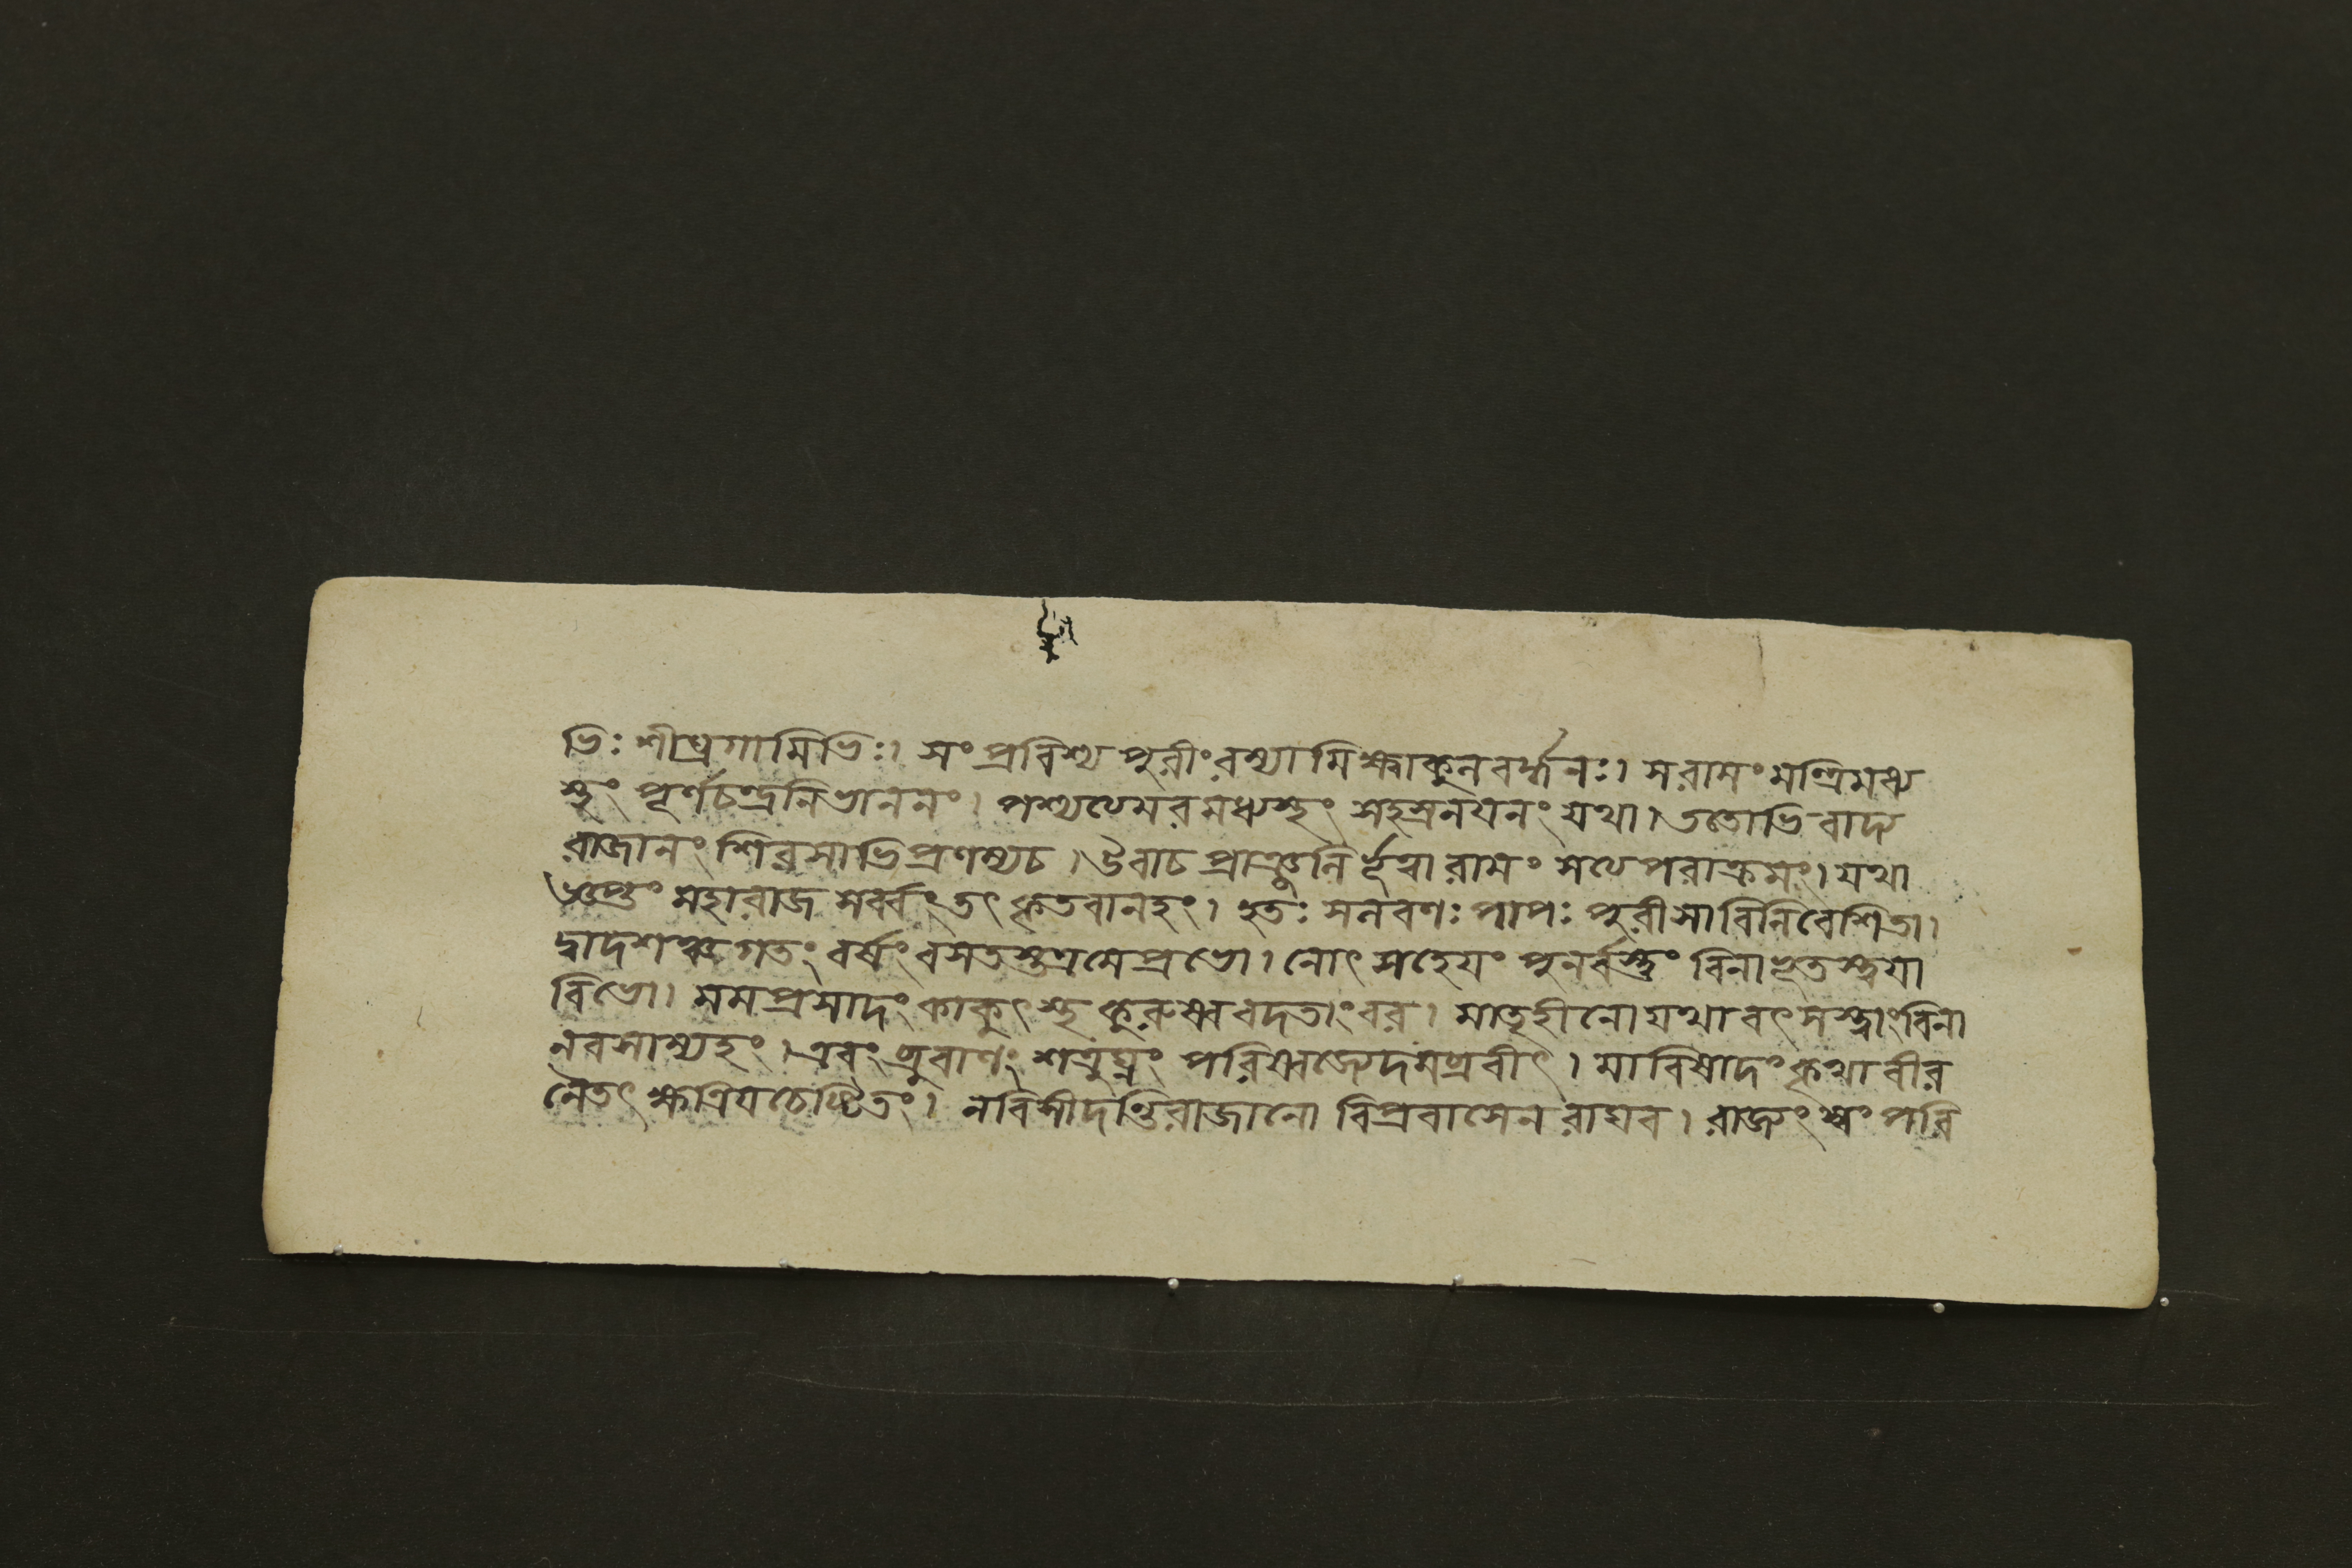 ভিঃ শীঘ্রগামিভিঃ। সংপ্রবিশ্য পুরীংরম্যামিক্ষ্বাকুনবর্দ্ধনঃ। সরামংমন্ত্রিমধ্য
স্থং পূর্ণচন্দ্রনিভাননং। পশ্যথেমরমধ্যস্থং সহস্রনযনং যথা। ততোভিবাদ্য
রাজানং শিরসাভিপ্রণম্যচ। উবাচ প্রাঞ্জুনির্ভূত্বা রামং সথেপরাক্রমং। যথা
মহারাজ সর্ব্বংতৎ কৃতবানহং। হতঃ সনবণঃ পাপঃ পুরীসাবিনিবেশিতা।
দ্বাদশঞ্চ গতং বর্ষং বসতস্তত্রমেপ্রভো। নোৎসহেযং পুনর্বস্তুং বিনাভূতস্ত্বযা
বিভো। মমপ্রসাদং কাকুৎস্থ কুরুষ্ব বদতাংবর। মাতৃহীনো যথা বৎসস্ত্বাংবিনা
নবসাম্যহং। এবং ব্রুবাণং শত্রুঘ্নং পরিষ্বজ্যেদমব্রবীৎ। মাবিষাদংকৃথা বীর
নৈতৎ ক্ষত্রিযচেষ্টিতং। নবিসীদন্তিরাজানো বিপ্রবাসেন রাঘব। রাজ্যংস্বং পরি